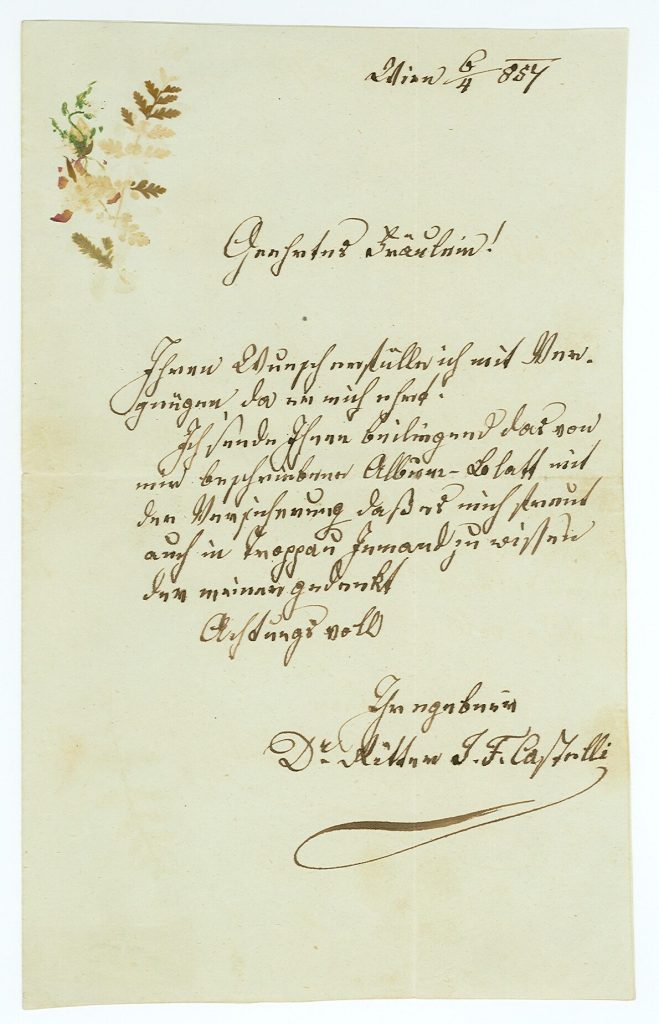 Wien 6/4 857
Geehrtes Fräulein!
Ihren Wunsch erfülle ich mit Ver-
gnügen da er mich ehrt.
Ich sende Ihnen beiliegend das von
mir beschriebene Album-Blatt mit
der Versicherung daß es mich freut
auch in Troppau Jemand zu wissen
der meiner gedenkt
Achtungsvoll
Ihr ergebener
Dr. Ritter J. F. Castelli